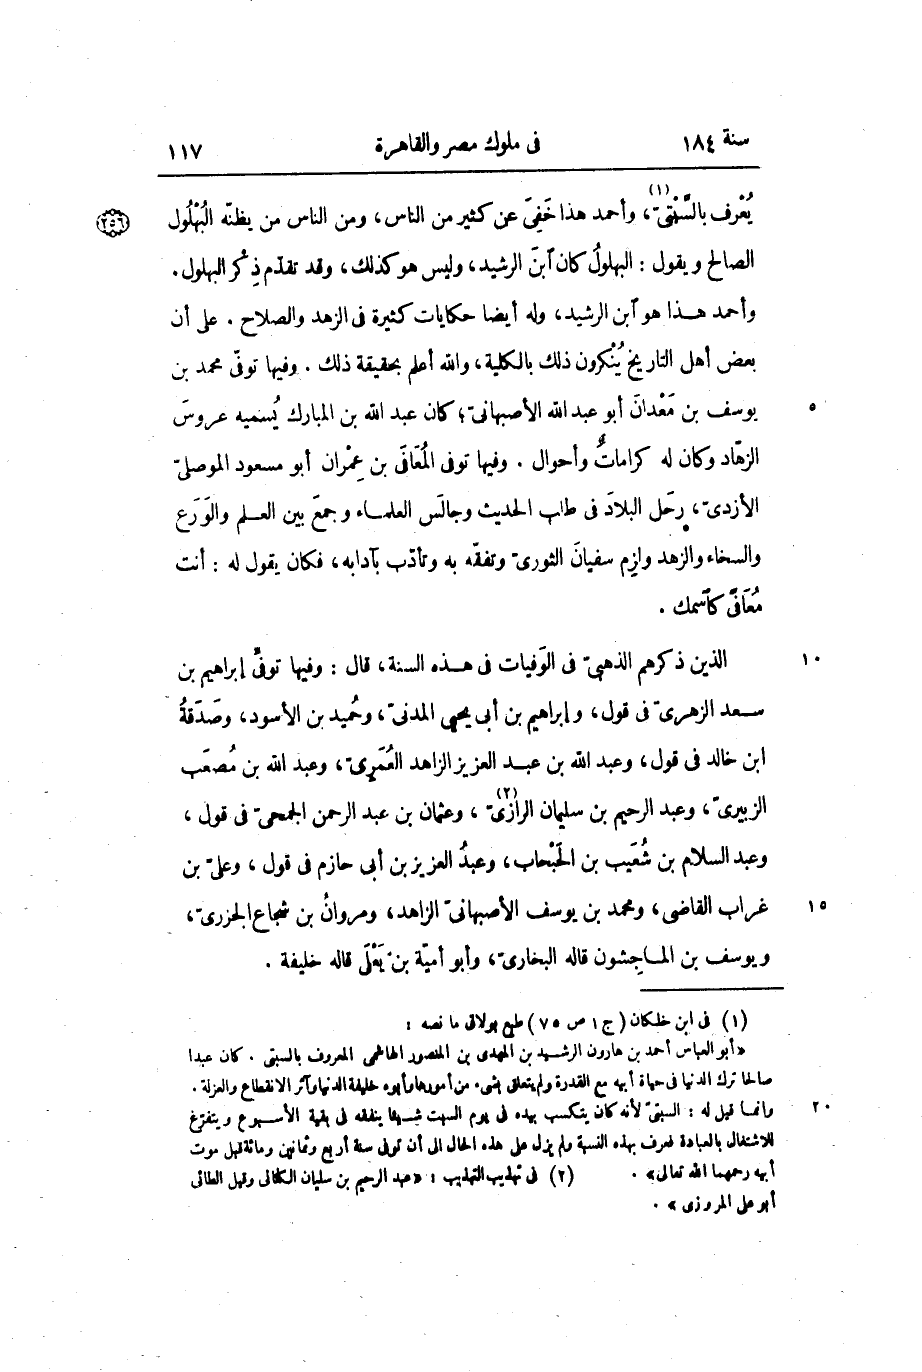 سنة ١٨٤ فى ملوك مصر والقاهرة ١١٧
يُعْرف بالسَّبْتىّ(١)، وأحمد هذا خَفِىَ عن كثير من الناس، ومن الناس من يظنّه البُهْلُول (٢٥٦)
الصالح ويقول : البهلولُ كان ٱبنَ الرشيد، وليس هو كذلك، وقد تقدّم ذِكْر البهلول.
وأحمد هـذا هو ٱبن الرشيد، وله أيضا حكايات كثيرة فى الزهد والصلاح . على أن
بعض أهل التاريخ يُنْكِرون ذلك بالكلية، والله أعلم بحقيقة ذلك . وفيها توفّى محمد بن
يوسف بن مَعْدانَ أبو عبد الله الأصبهانىّ؛ كان عبد الله بن المبارك يُسميه عروسَ ٥
الزهّاد وكان له كراماتٌ وأحوال . وفيها توفى المُعَافَى بن عِمْران أبو مسعود الموصلىّ
الأزدىّ، رحَل البلادَ فى طلب الحديث وجالَس العلماء وجمعَ بين العـلم والوَرَع
والسخاء والزهد ولزِم سفيانَ الثورىّ وتفقّه به وتأدّب بآدابه، فكان يقول له : أنت
مُعَافًى كٱسمك .
الذين ذكرهم الذهبىّ فى الوَفيات فى هـذه السنة، قال : وفيها توفّى إبراهيم بن ١٠
سـعد الزهرىّ فى قول، وإبراهيم بن أبى يحيى المدنىّ، وحُميد بن الأسود، وصَدَقةُ
ابن خالد فى قول، وعبد الله بن عبـد العزيز الزاهد العُمَرِىّ، وعبد الله بن مُصْعَب
الزبيرىّ، وعبد الرحيم بن سليمان الرازىّ(٢)، وعثمان بن عبد الرحمن الجمحىّ فى قول،
وعبد السلام بن شُعَيب بن الحَبْحاب، وعبدُ العزيز بن أبى حازم فى قول، وعلىّ بن
غراب القاضى، ومحمد بن يوسف الأصبهانىّ الزاهد، ومروانُ بن شجاع الجزرىّ، ١٥
ويوسف بن المـاجِشون قاله البخارىّ، وأبو أميّة بنّ يَعْلَى قاله خليفة .
(١) فى ابن خلكان (ج ١ ص ٧٥) طبع بولاق ما نصه :
«أبو العباس أحمد بن هارون الرشيد بن المهدى بن المنصور الهاشمى المعروف بالسبتى . كان عبدا
صالحا ترك الدنيا فى حياة أبيه مع القدرة ولم يتعلق بشىء من أمورها وأبوه خليفة الدنيا وآثر الانقطاع والعزلة .
وانمـا قيل له : السبتىّ لأنه كان يتكسب بيده فى يوم السبت شـيئا ينفقه فى بقية الأسـبوع ويتفرّغ ٢٠
للاشتغال بالعبادة فعرف بهذه النسبة ولم يزل على هذه الحال الى أن توفى سنة أربع وثمانين ومائة قبل موت
أبيه رحمهما الله تعالى» . (٢) فى تهذيب التهذيب : «عبد الرحيم بن سليمان الكنانى وقيل الطائى
أبو على المروزى» .